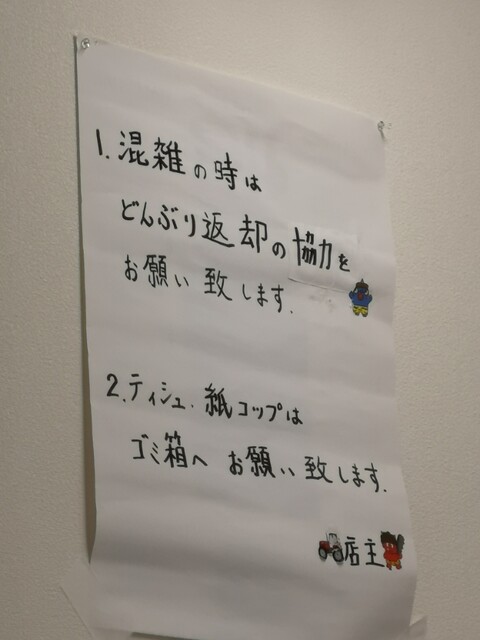 1. 混雑の時は
どんぶり返却の協力を
お願い致します.
2. ティシュ.紙コップは
ゴミ箱へ お願い致します.
店主